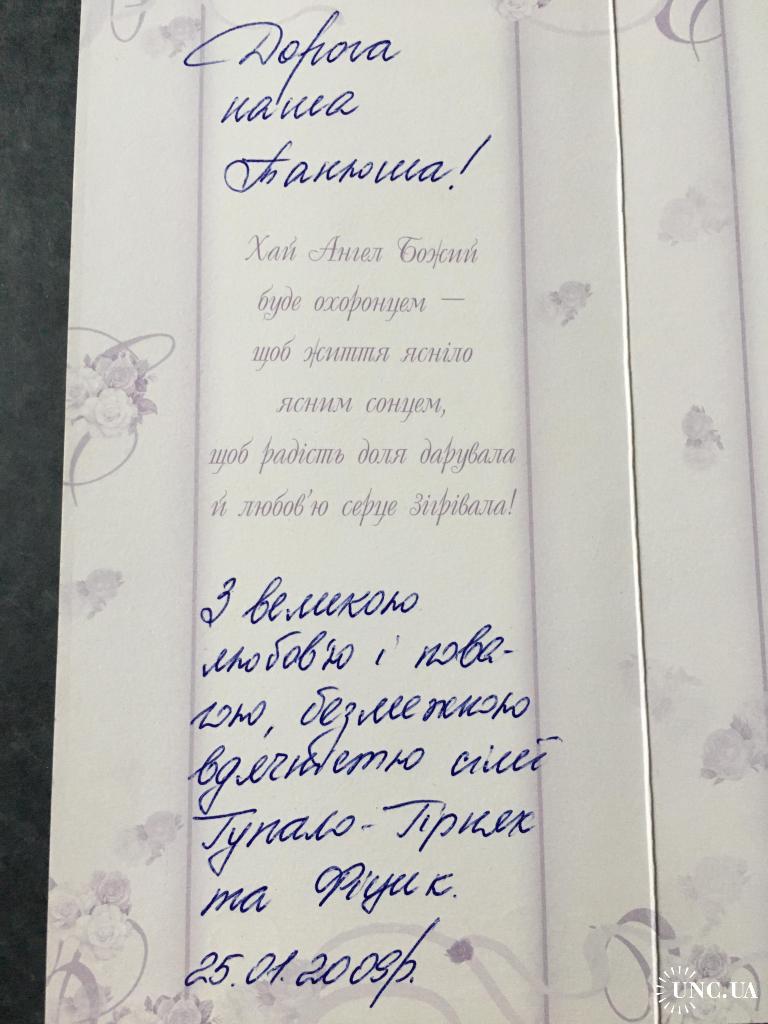 Дорога
наша
Танюша!
Хай Ангел Божий
буде охоронцем —
щоб життя ясніло
ясним сонцем,
щоб радість доля дарувала
й любов'ю серце зігрівала!
З великою
любов'ю і пова-
гою, безмежною
вдячністю сімї
Тупало-Гірняк
та Фіцик.
25.01.2009р.
UNC.UA